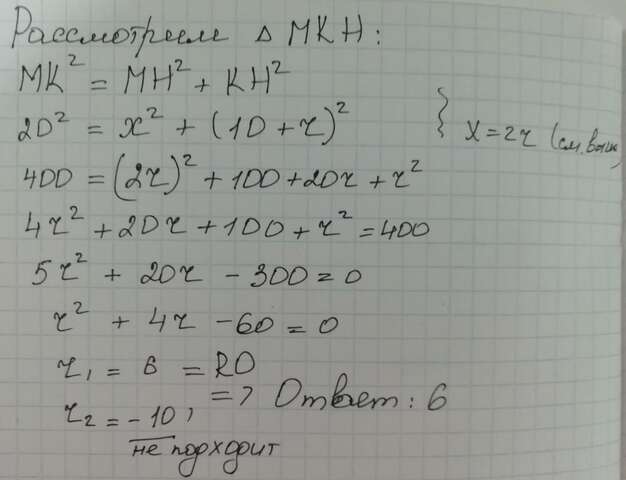 Рассмотрим △ MKH:
MK² = MH² + KH²
20² = x² + (10 + r)² } x = 2r (см. выше)
400 = (2r)² + 100 + 20r + r²
4r² + 20r + 100 + r² = 400
5r² + 20r - 300 = 0
r² + 4r - 60 = 0
r₁ = 6 = RO
r₂ = -10, => Ответ: 6
не подходит